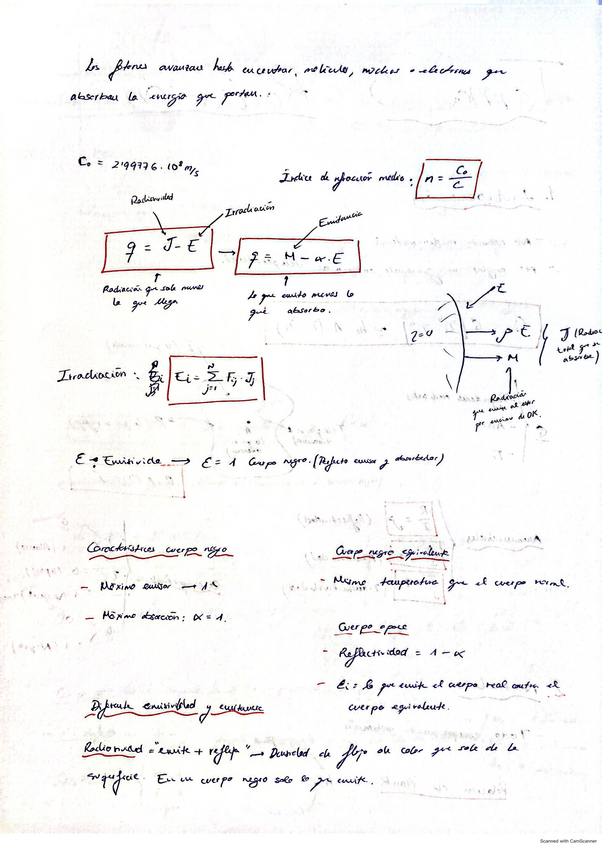 Los fotones avanzan hasta encontrar, moléculas, núcleos o electrones que
absorban la energía que portan.
C₀ = 2'99776 · 10⁸ m/s
Índice de refracción medio: n = C₀/C
Radiosidad
Irradiación
Emitancia
q = J - E → q = M - α · E
Radiación que sale menos
la que llega
Lo que emito menos lo
que absorbo.
E
ρ · E
M
Radiación
que emite al estar
por encima de 0K.
Irradiación: Ei = Σ Fij · Jj
j=1
N
E → Emisividad → E = 1 Cuerpo negro. (Perfecto emisor y absorbedor)
Características cuerpo negro
- Máximo emisor → 1
- Máxima absorción: α = 1.
Cuerpo negro equivalente
- Misma temperatura que el cuerpo normal.
Cuerpo opaco
- Reflectividad = 1 - α
- Ei = lo que emite el cuerpo real contra el
cuerpo equivalente.
Diferente emisividad y emitancia
Radiosidad = "emite + refleja" → Densidad de flujo de calor que sale de la
superficie. En un cuerpo negro solo lo que emite.
Scanned with CamScanner